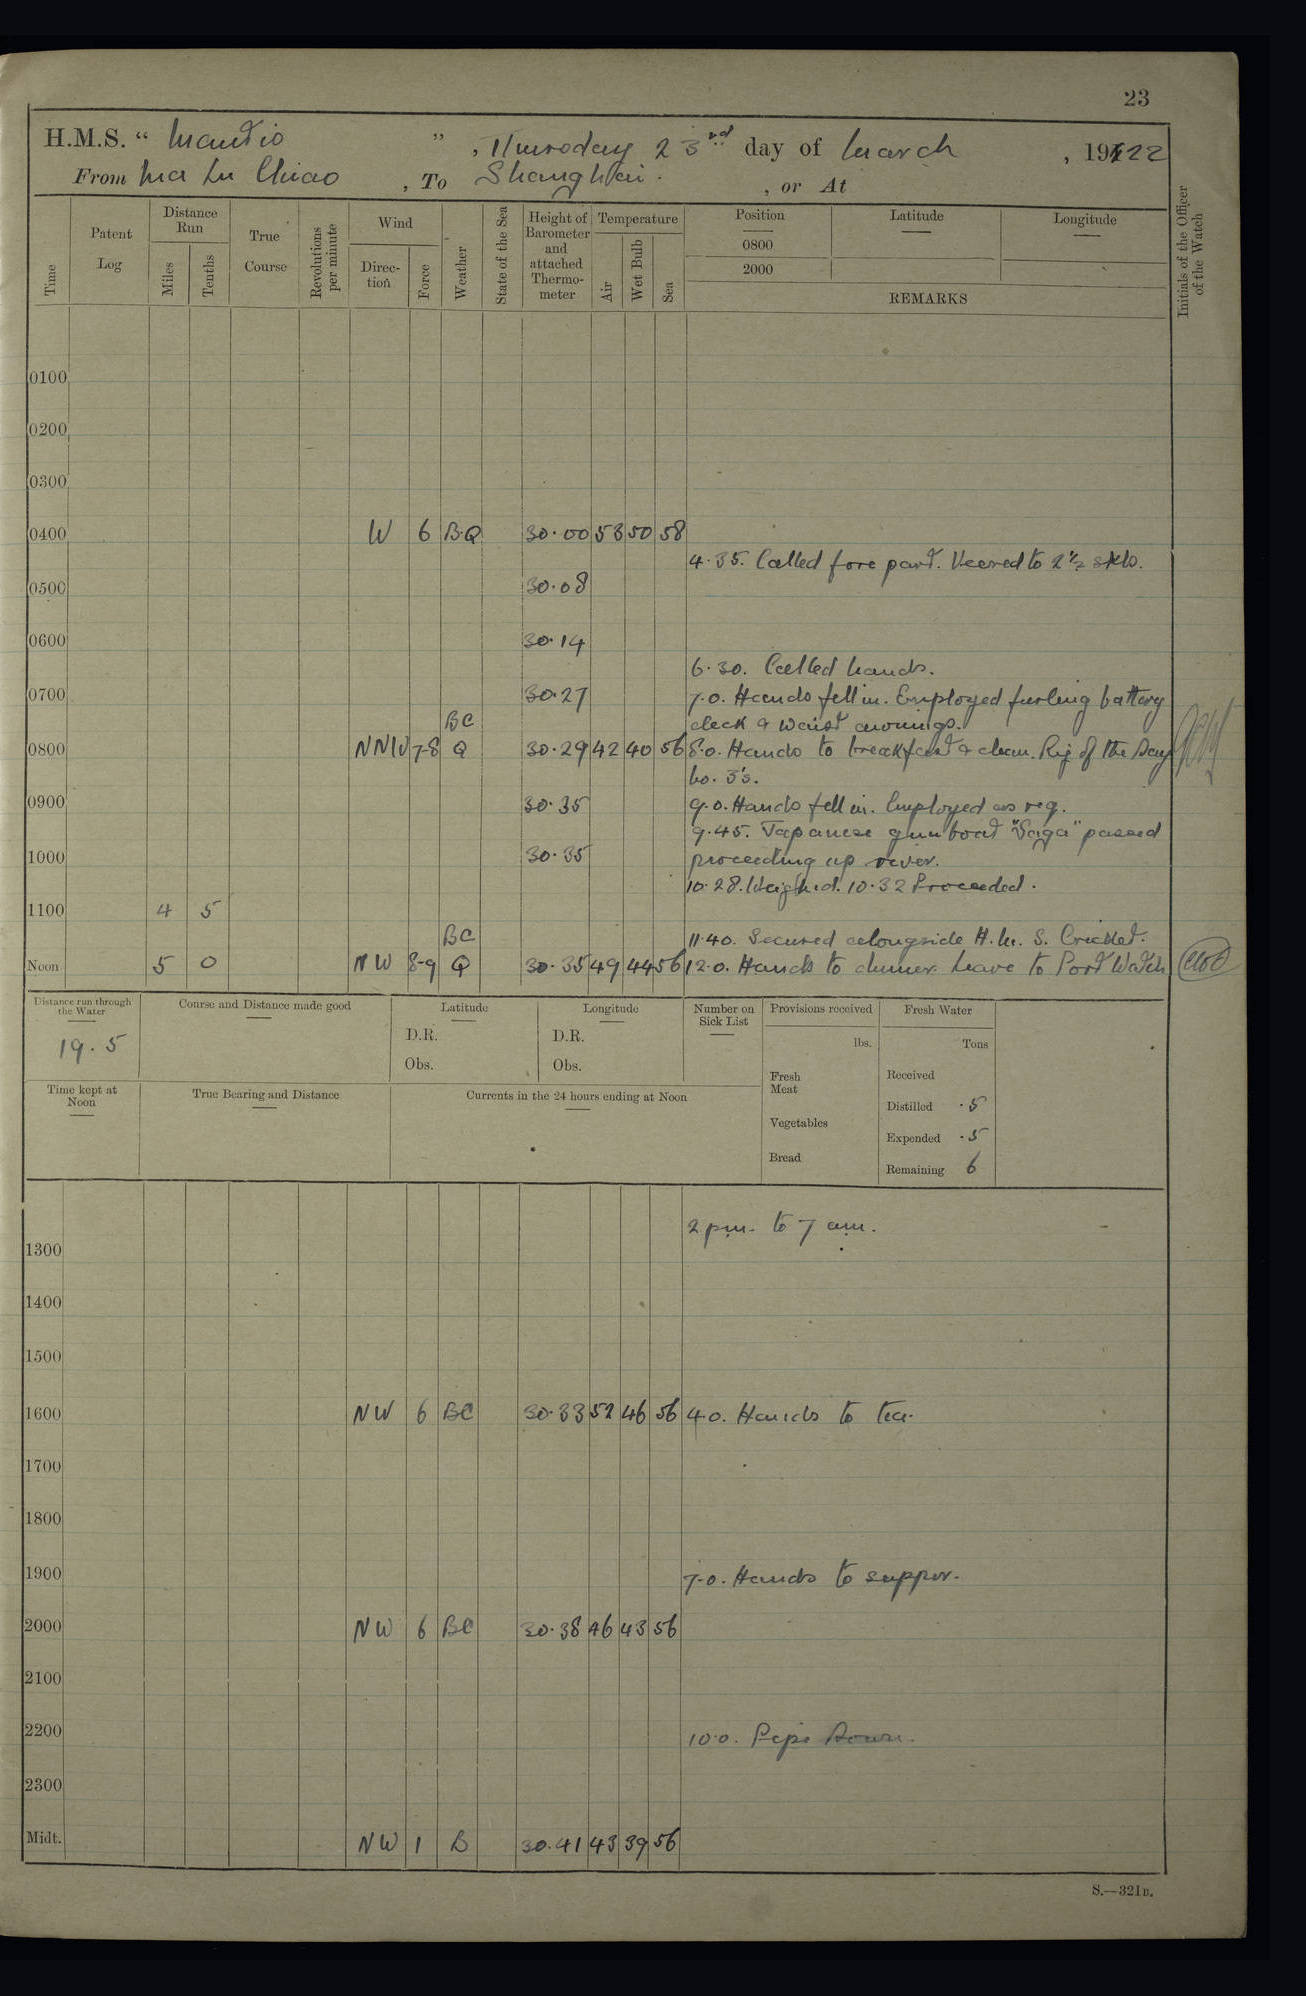 23
H.M.S. “ Mantis ”, Thursday 23rd day of March, 1922
From Ma Lu Chiao, To Shanghai., or At
Time
Patent Log
Distance Run
Miles
Tenths
True Course
Revolutions per minute
Wind
Direction
Force
Weather
State of the Sea
Height of Barometer and attached Thermometer
Temperature
Air
Wet Bulb
Sea
Position
Latitude
Longitude
0800
2000
REMARKS
Initials of the Officer of the Watch
0100
0200
0300
0400 W 6 B.Q 30.00 53 50 58
4.35. Called fore part. Veered to 2½ skls.
0500 30.08
0600 30.14
6.30. Called hands.
0700 30.27 7.0. Hands fell in. Employed furling battery
BC deck & waist awnings.
0800 NNW 7-8 Q 30.29 42 40 56 8.0. Hands to breakfast & clean. Rig of the Day
No. 3's.
0900 30.35 9.0. Hands fell in. Employed as req.
9.45. Japanese gunboat "Saga" passed
1000 30.35 proceeding up river.
10.28. Weighed. 10.32 Proceeded.
1100 4 5
BC 11.40. Secured alongside H.M.S. Cricket.
Noon 5 0 NW 8-9 Q 30.35 49 44 56 12.0. Hands to dinner. Leave to Port Watch
Distance run through the Water
19.5
Course and Distance made good
Latitude
D.R.
Obs.
Longitude
D.R.
Obs.
Number on Sick List
Provisions received
lbs.
Fresh Meat
Vegetables
Bread
Fresh Water
Tons
Received
Distilled .5
Expended .5
Remaining 6
Time kept at Noon
True Bearing and Distance
Currents in the 24 hours ending at Noon
2 pm. to 7 am.
1300
1400
1500
1600 NW 6 BC 30.33 52 46 56 4.0. Hands to tea.
1700
1800
1900 7.0. Hands to supper.
2000 NW 6 BC 30.38 46 43 56
2100
2200 10.0. Pipe Down.
2300
Midt. NW 1 B 30.41 43 39 56
S.—321B.